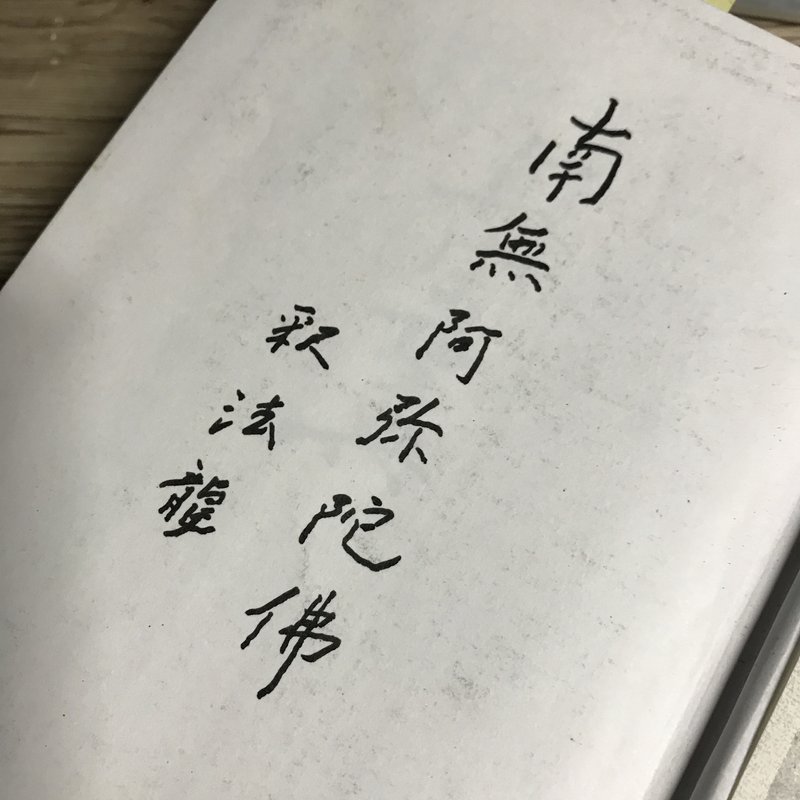 南無阿弥陀佛
釈法